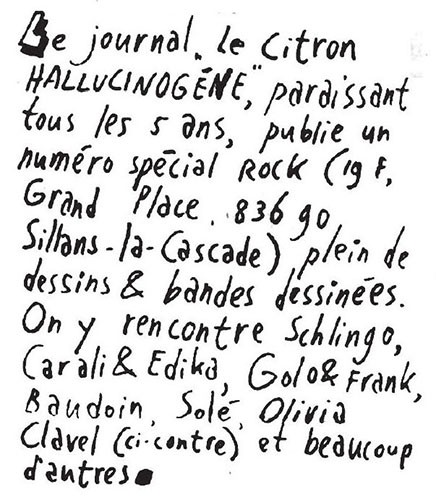 Le journal "Le Citron
HALLUCINOGÉNE", paraissant
tous les 5 ans, publie un
numéro spécial ROCK (19 F,
Grand Place. 83690
Sillans-la-Cascade) plein de
dessins & bandes dessinées.
On y rencontre Schlingo,
Carali & Edika, Golo & Frank,
Baudoin, Solé, Olivia
Clavel (ci-contre) et beaucoup
d'autres.